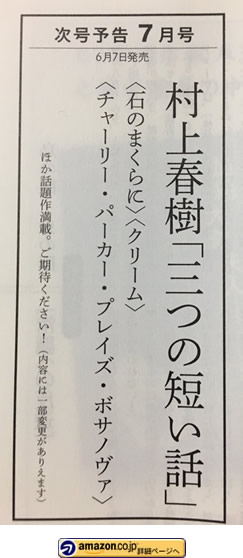 次号予告 7月号
6月7日発売
村上春樹「三つの短い話」
〈石のまくらに〉〈クリーム〉
〈チャーリー・パーカー・プレイズ・ボサノヴァ〉
ほか話題作満載。ご期待ください!(内容には一部変更がありえます)
amazon.co.jp
詳細ページへ